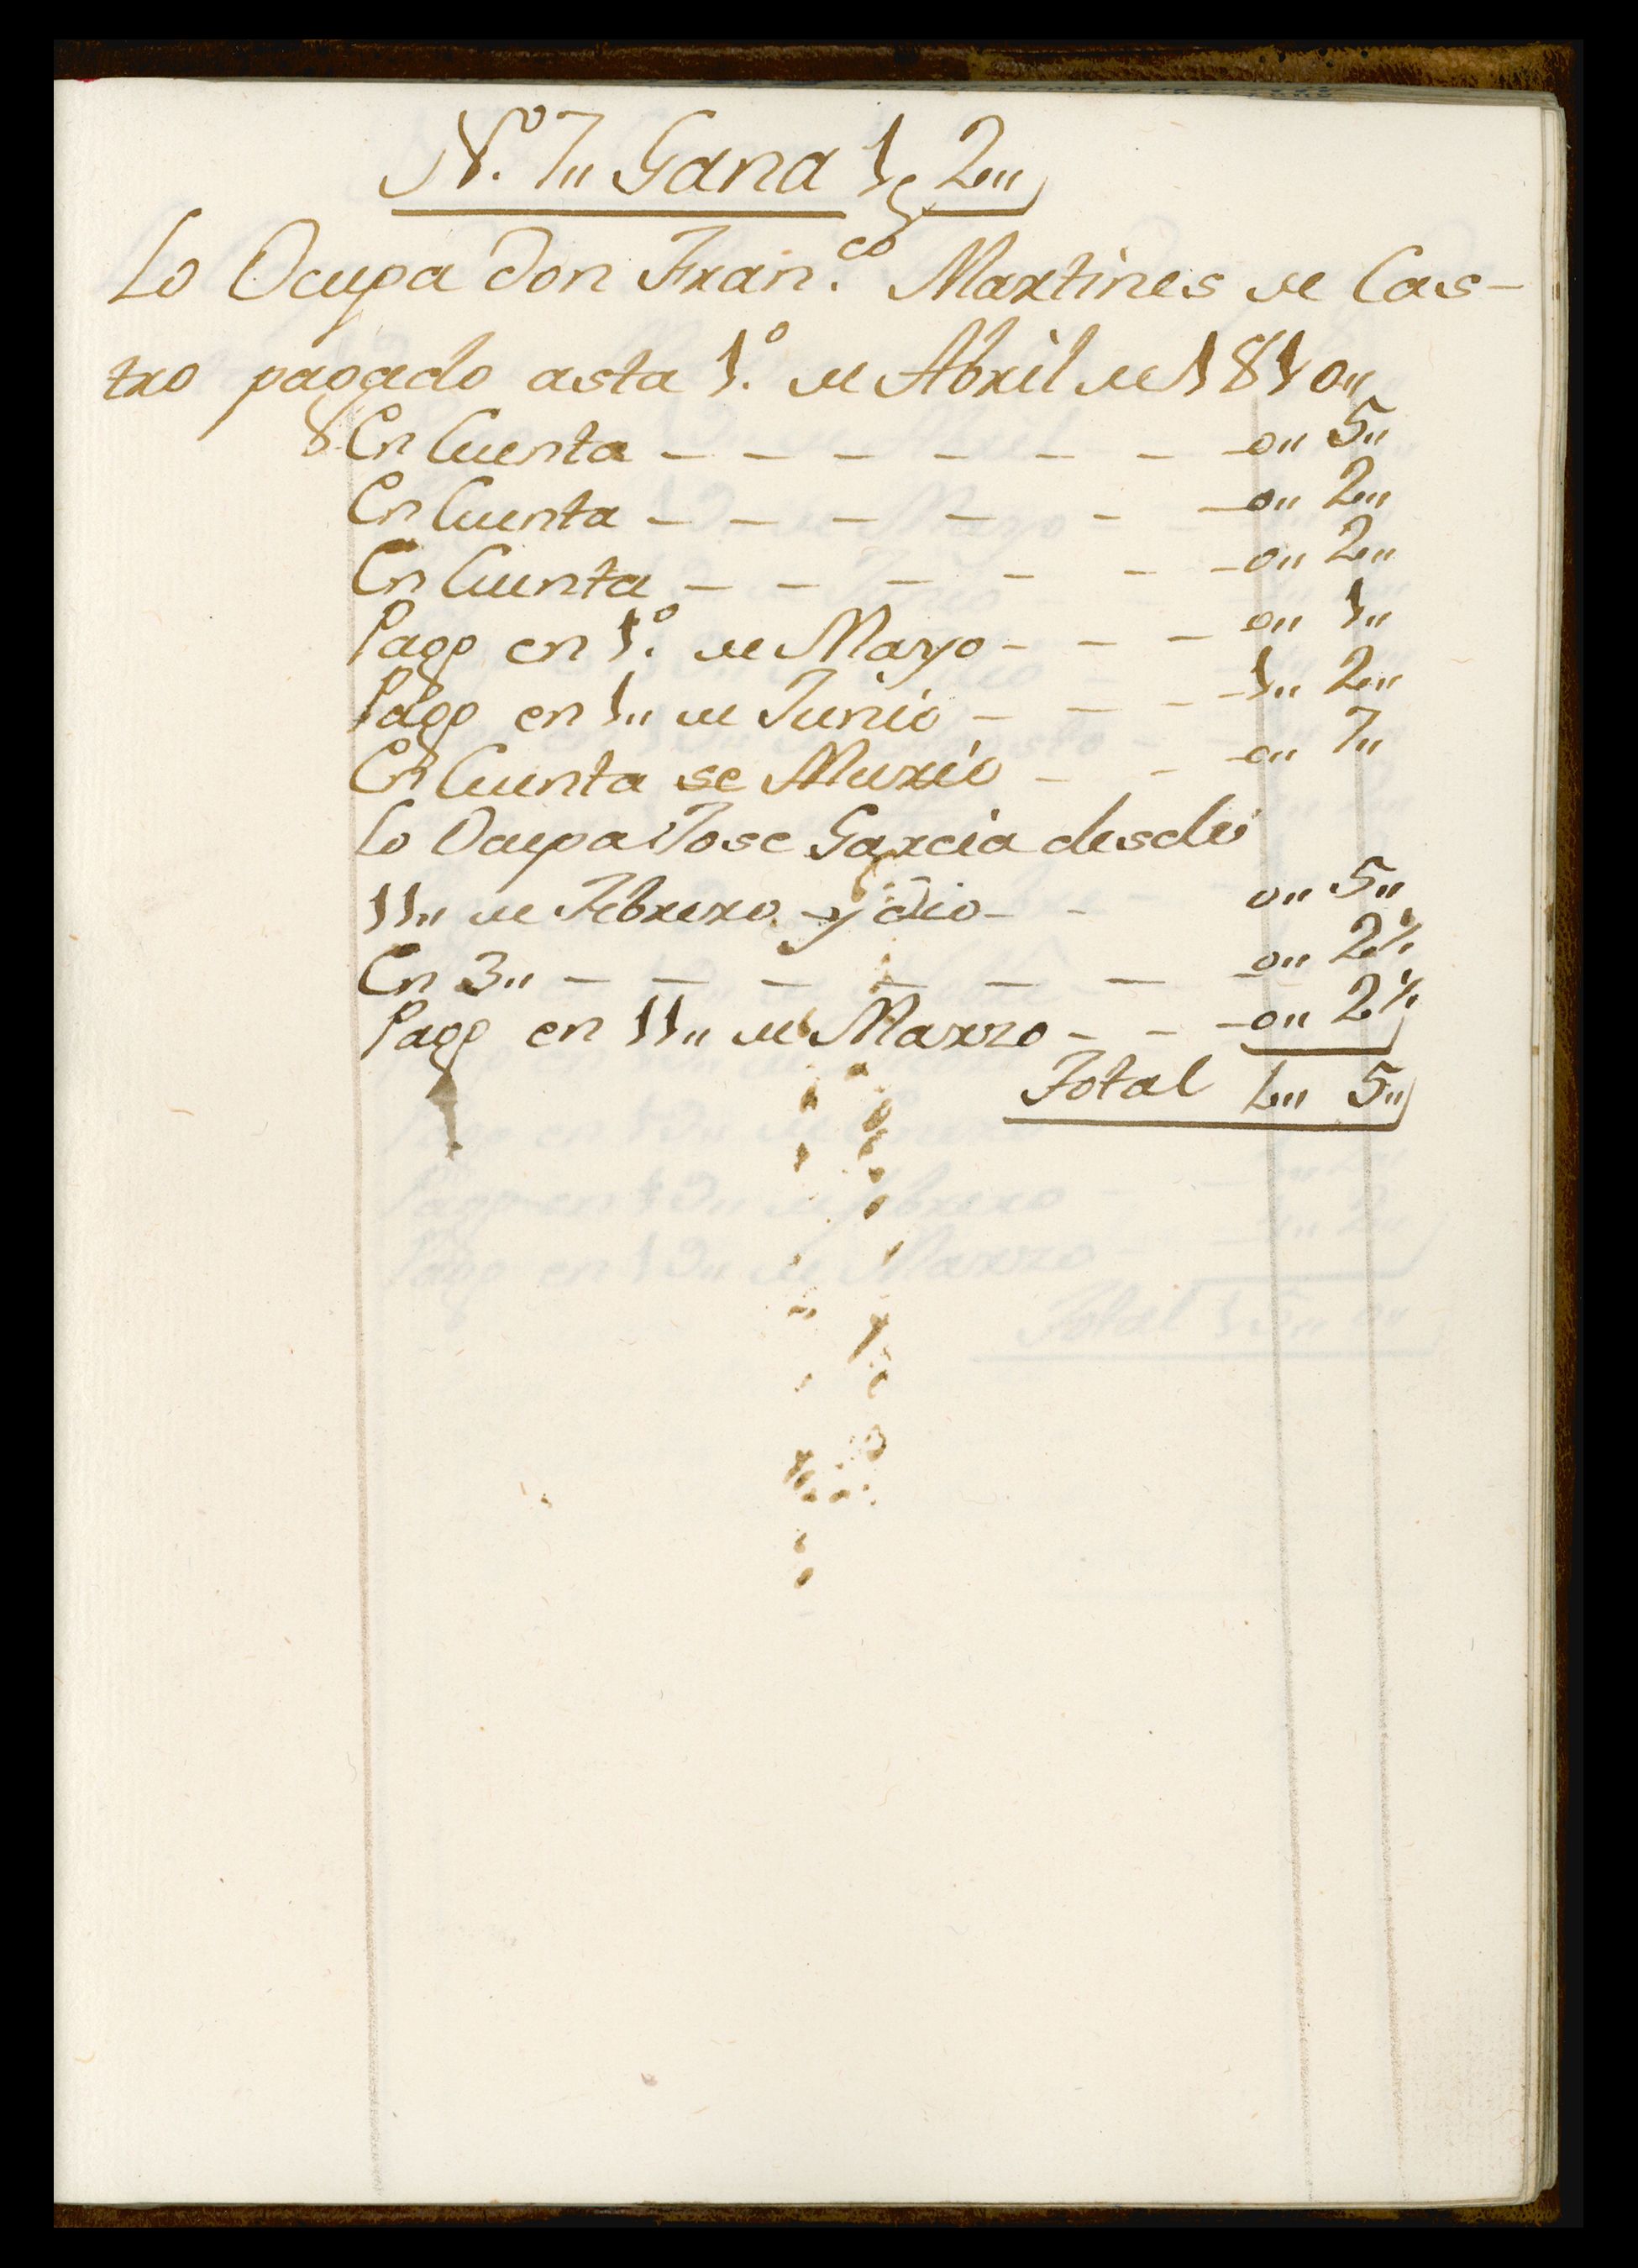 N.º 7,, Gana 1ps 2,,
Lo Ocupa Don Fran.co Martines de Cas-
tro pagado asta 1.º de Abril de 1810,,
En Cuenta - - - - - - 0,, 5,,
En Cuenta - - - - - - 0,, 2,,
En Cuenta - - - - - - 0,, 2,,
Pago en 1.º de Mayo - - - 0,, 1,,
Pago en 1,, de Junio - - - 1,, 2,,
En Cuenta se Murió - - - 0,, 7,,
Lo Ocupa Jose Garcia desde
11,, de Febrero y dio - - 0,, 5,,
En 3,, - - - - - - - 0,, 2½
Pago en 11,, de Marzo - - - 0,, 2½
Total 4,, 5,,